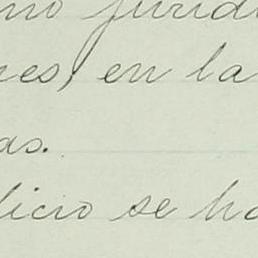 mo jurid
nes, en la
as.
licio se ha